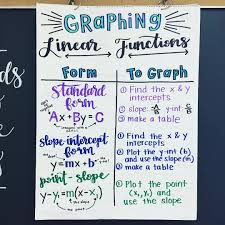 GRAPHING
Linear Functions
Form
To Graph
standard
form
Ax + By = C
① Find the x & y
intercepts
② slope:
y-int
③ make a table
slope-intercept
form
y = mx + b
① Find the x & y
intercepts
② Plot the y-int (b)
and use the slope (m)
③ make a table
point - slope
y-y₁=m(x-x₁)
① Plot the point
(x₁, y₁) and
use the slope
ds